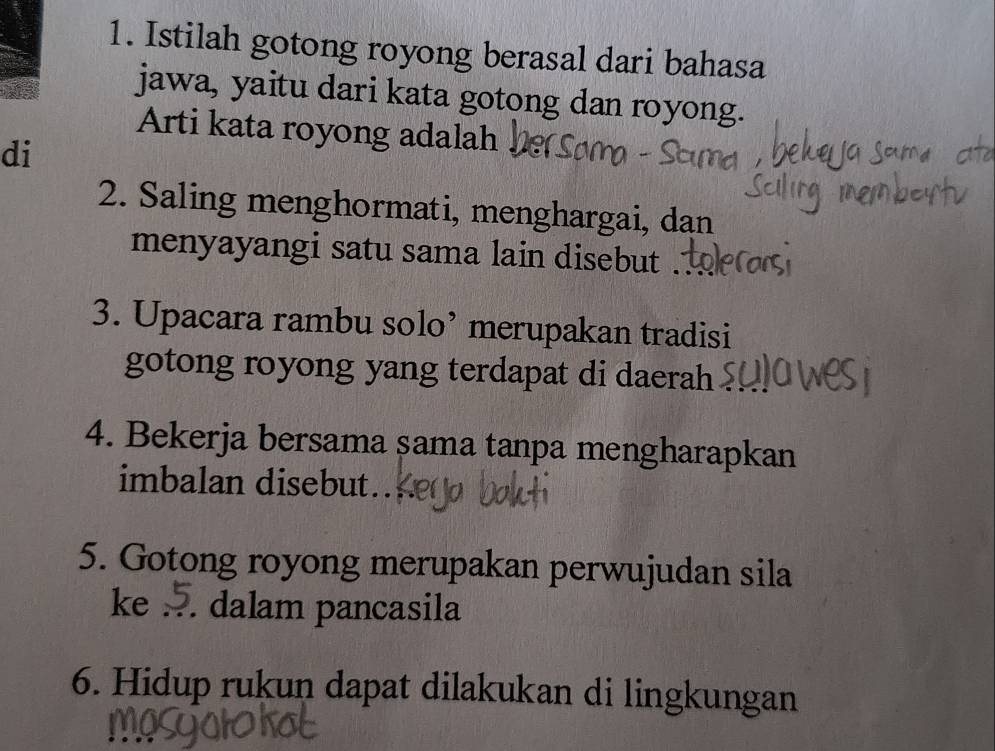 1. Istilah gotong royong berasal dari bahasa
jawa, yaitu dari kata gotong dan royong.
Arti kata royong adalah bersama - sama, bekerja sama ata
saling membantu
di
2. Saling menghormati, menghargai, dan
menyayangi satu sama lain disebut ....toleransi
3. Upacara rambu solo’ merupakan tradisi
gotong royong yang terdapat di daerah ....sulawesi
4. Bekerja bersama sama tanpa mengharapkan
imbalan disebut....kerja bakti
5. Gotong royong merupakan perwujudan sila
ke .5. dalam pancasila
6. Hidup rukun dapat dilakukan di lingkungan
....masyarakat